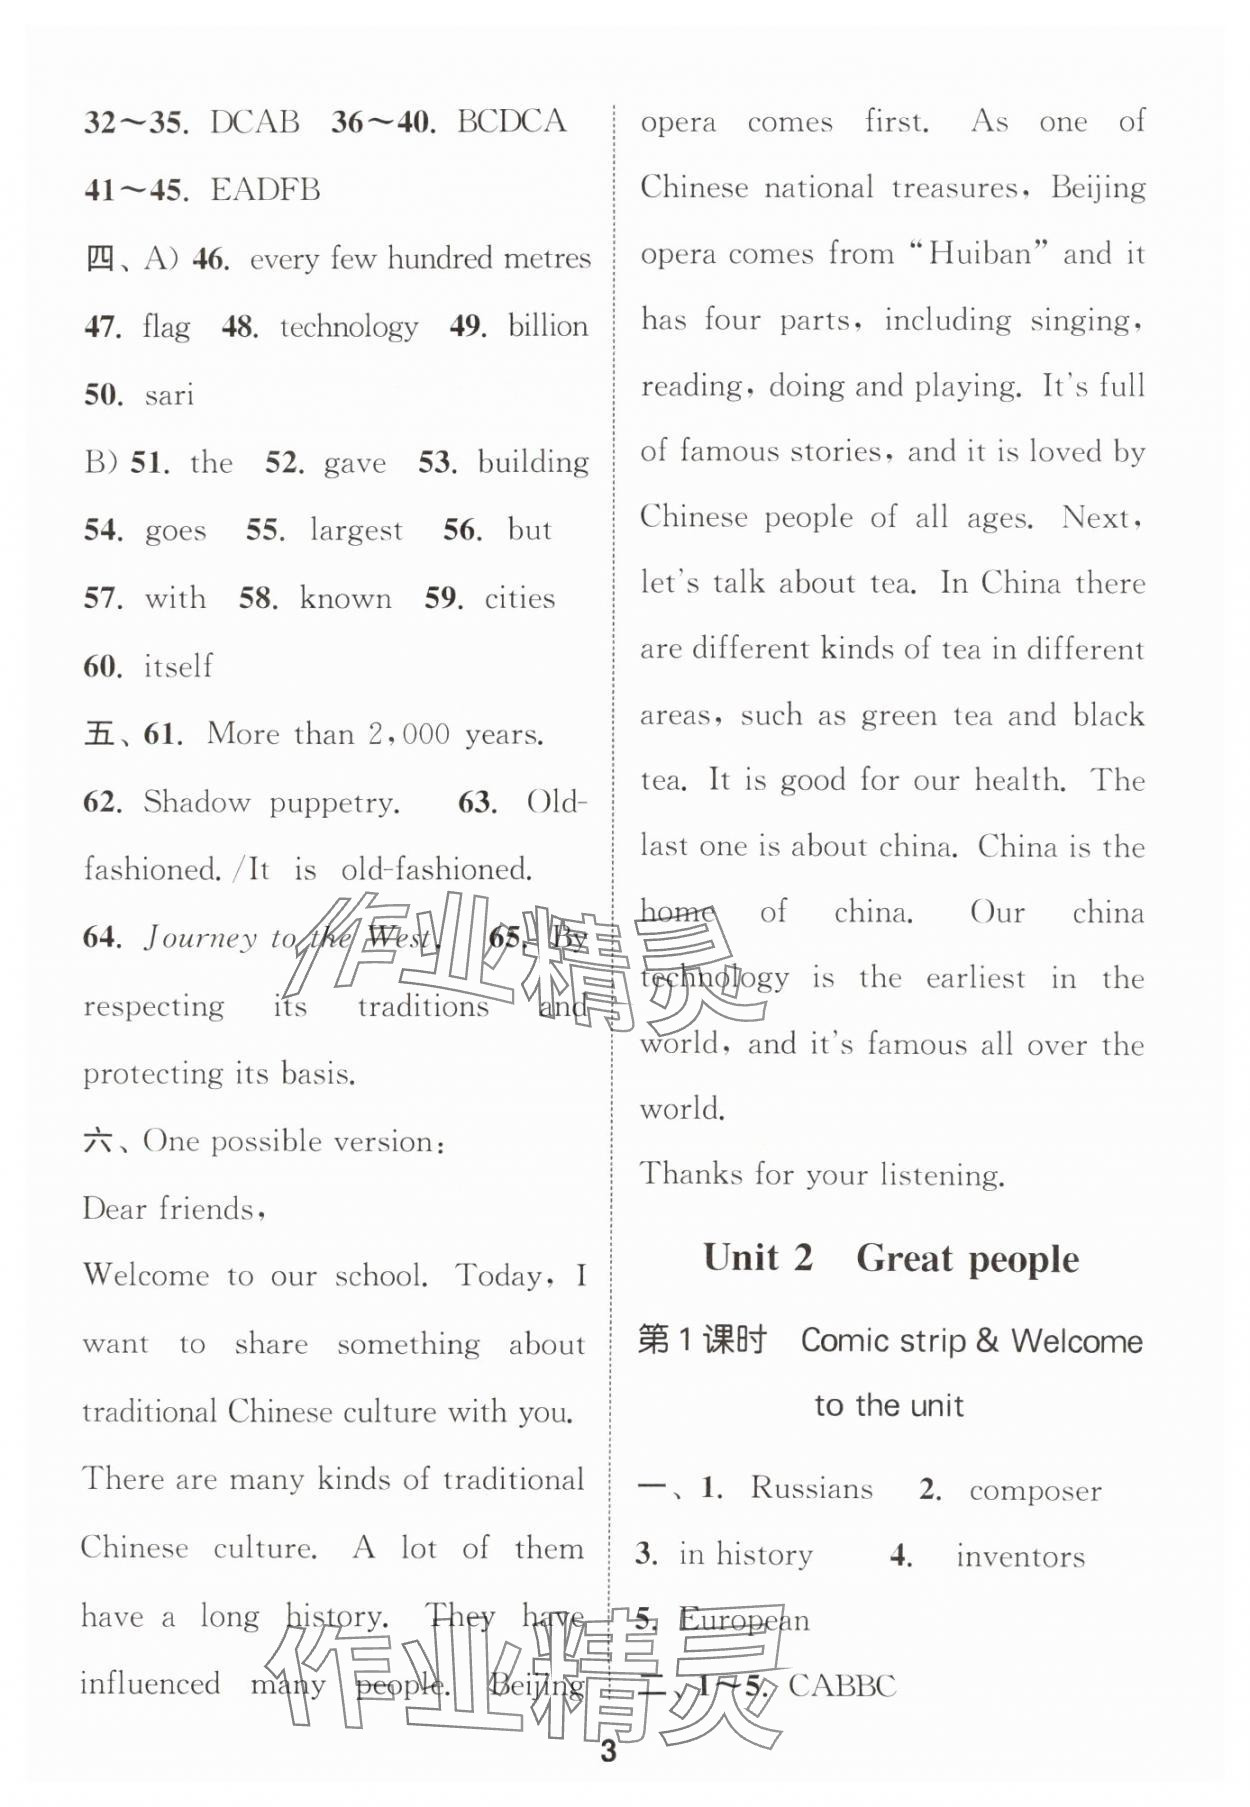 32～35. DCAB 36～40. BCDCA
41～45. EADFB
四、A) 46. every few hundred metres
47. flag 48. technology 49. billion
50. sari
B) 51. the 52. gave 53. building
54. goes 55. largest 56. but
57. with 58. known 59. cities
60. itself
五、61. More than 2,000 years.
62. Shadow puppetry. 63. Old-
fashioned./It is old-fashioned.
64. Journey to the West. 65. By
respecting its traditions and
protecting its basis.
六、One possible version:
Dear friends,
Welcome to our school. Today, I
want to share something about
traditional Chinese culture with you.
There are many kinds of traditional
Chinese culture. A lot of them
have a long history. They have
influenced many people. Beijing
opera comes first. As one of
Chinese national treasures, Beijing
opera comes from “Huiban” and it
has four parts, including singing,
reading, doing and playing. It's full
of famous stories, and it is loved by
Chinese people of all ages. Next,
let's talk about tea. In China there
are different kinds of tea in different
areas, such as green tea and black
tea. It is good for our health. The
last one is about china. China is the
home of china. Our china
technology is the earliest in the
world, and it's famous all over the
world.
Thanks for your listening.
Unit 2 Great people
第1课时 Comic strip & Welcome
to the unit
一、1. Russians 2. composer
3. in history 4. inventors
5. European
二、1～5. CABBC
3
作业精灵
作业精灵